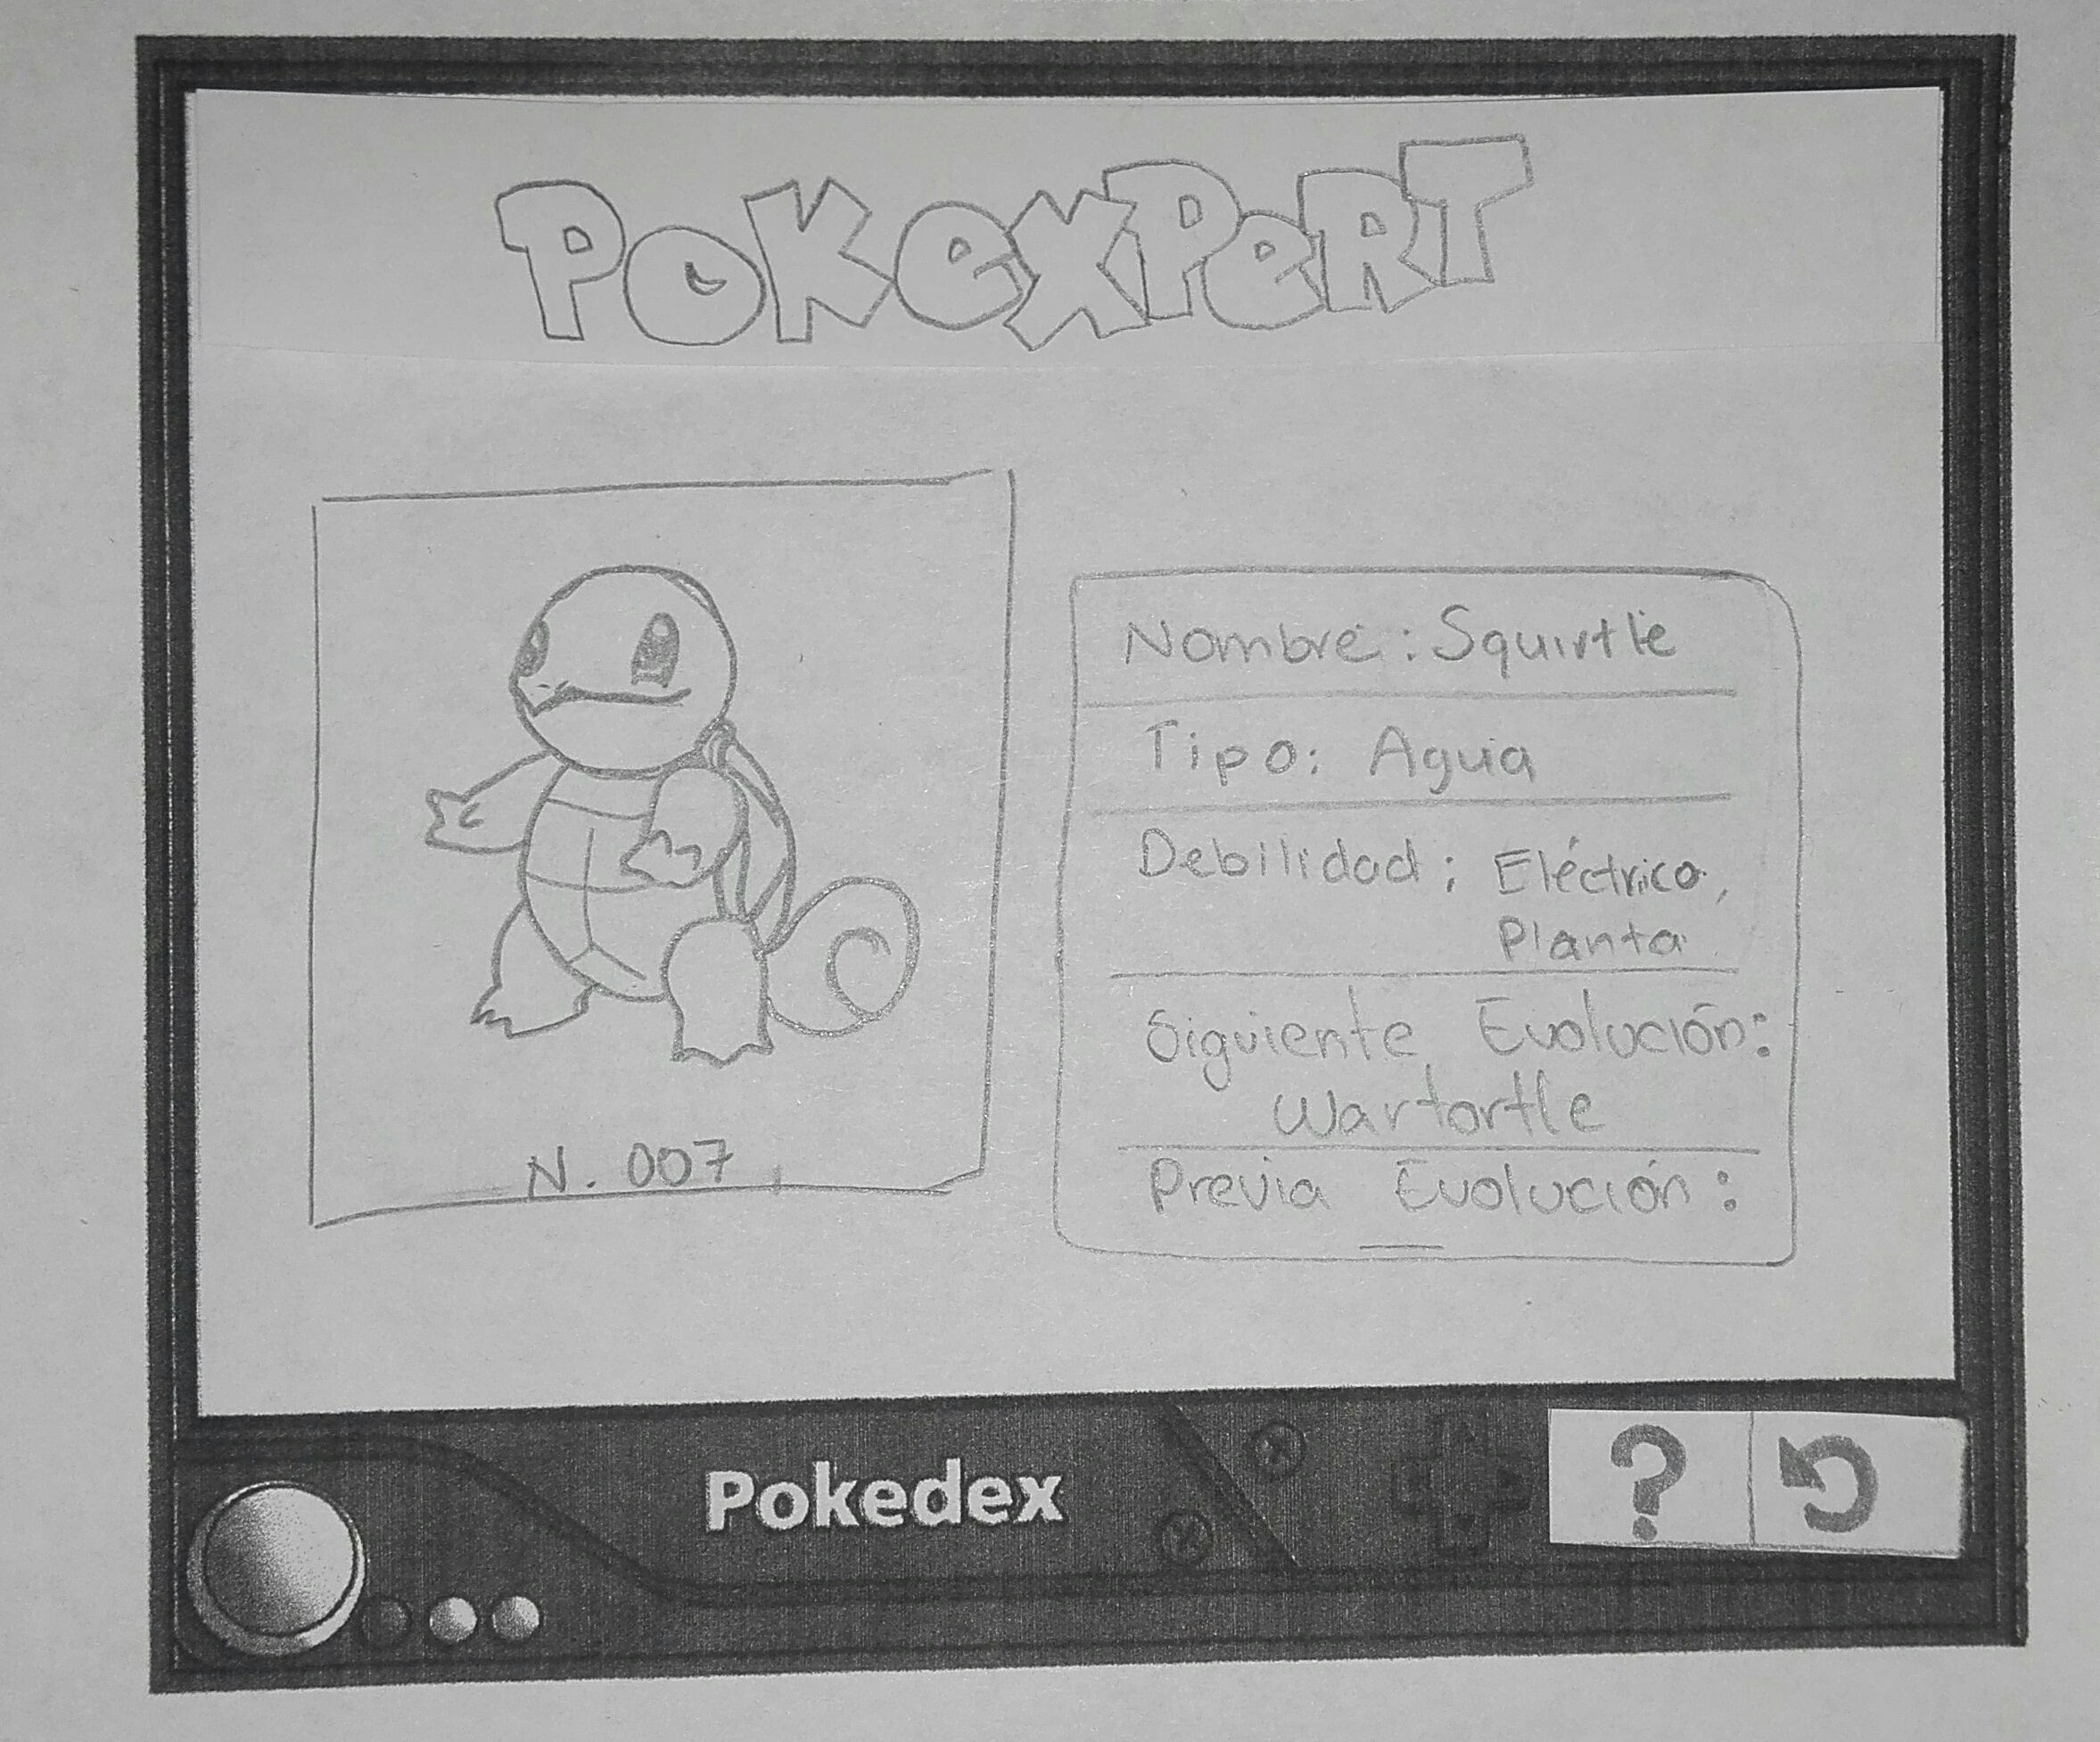 POKeXPeRT
Nombre: Squirtle
Tipo: Agua
Debilidad: Eléctrico,
Planta
Siguiente Evolución:
Wartortle
Previa Evolución:
—
N. 007
Pokedex
?